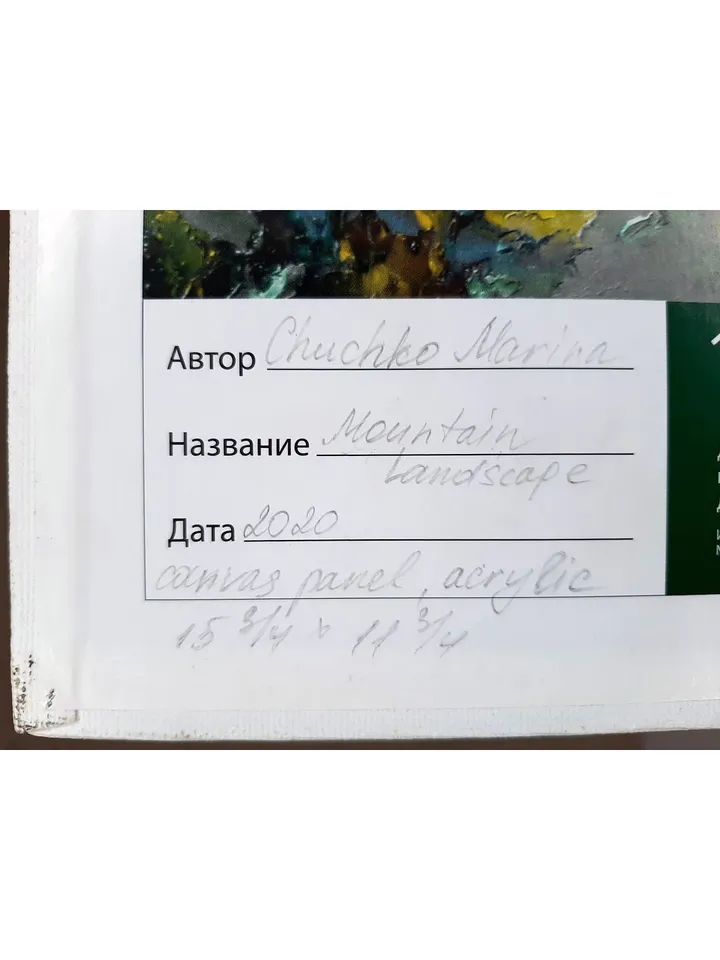 Автор Chuchko Marina
Название Mountain
Landscape
Дата 2020
canvas panel, acrylic
15 3/4 x 11 3/4